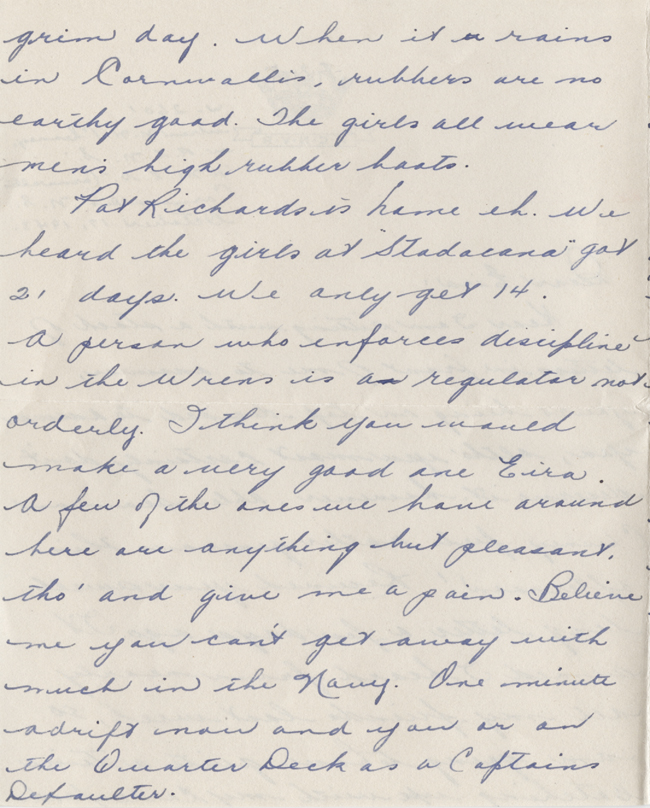 grim day. When it rains
in Cornwallis, rubbers are no
earthy good. The girls all wear
men's high rubber boots.
Pat Richards is home eh. We
heard the girls at "Stadacana" got
21 days. We only get 14.
A person who enforces discipline
in the Wrens is a regulator not
orderly. I think you would
make a very good one Eira.
A few of the ones we have around
here are anything but pleasant,
tho' and give me a pain. Believe
me you can't get away with
much in the Navy. One minute
adrift now and you or on
the Quarter Deck as a Captains
Defaulter.